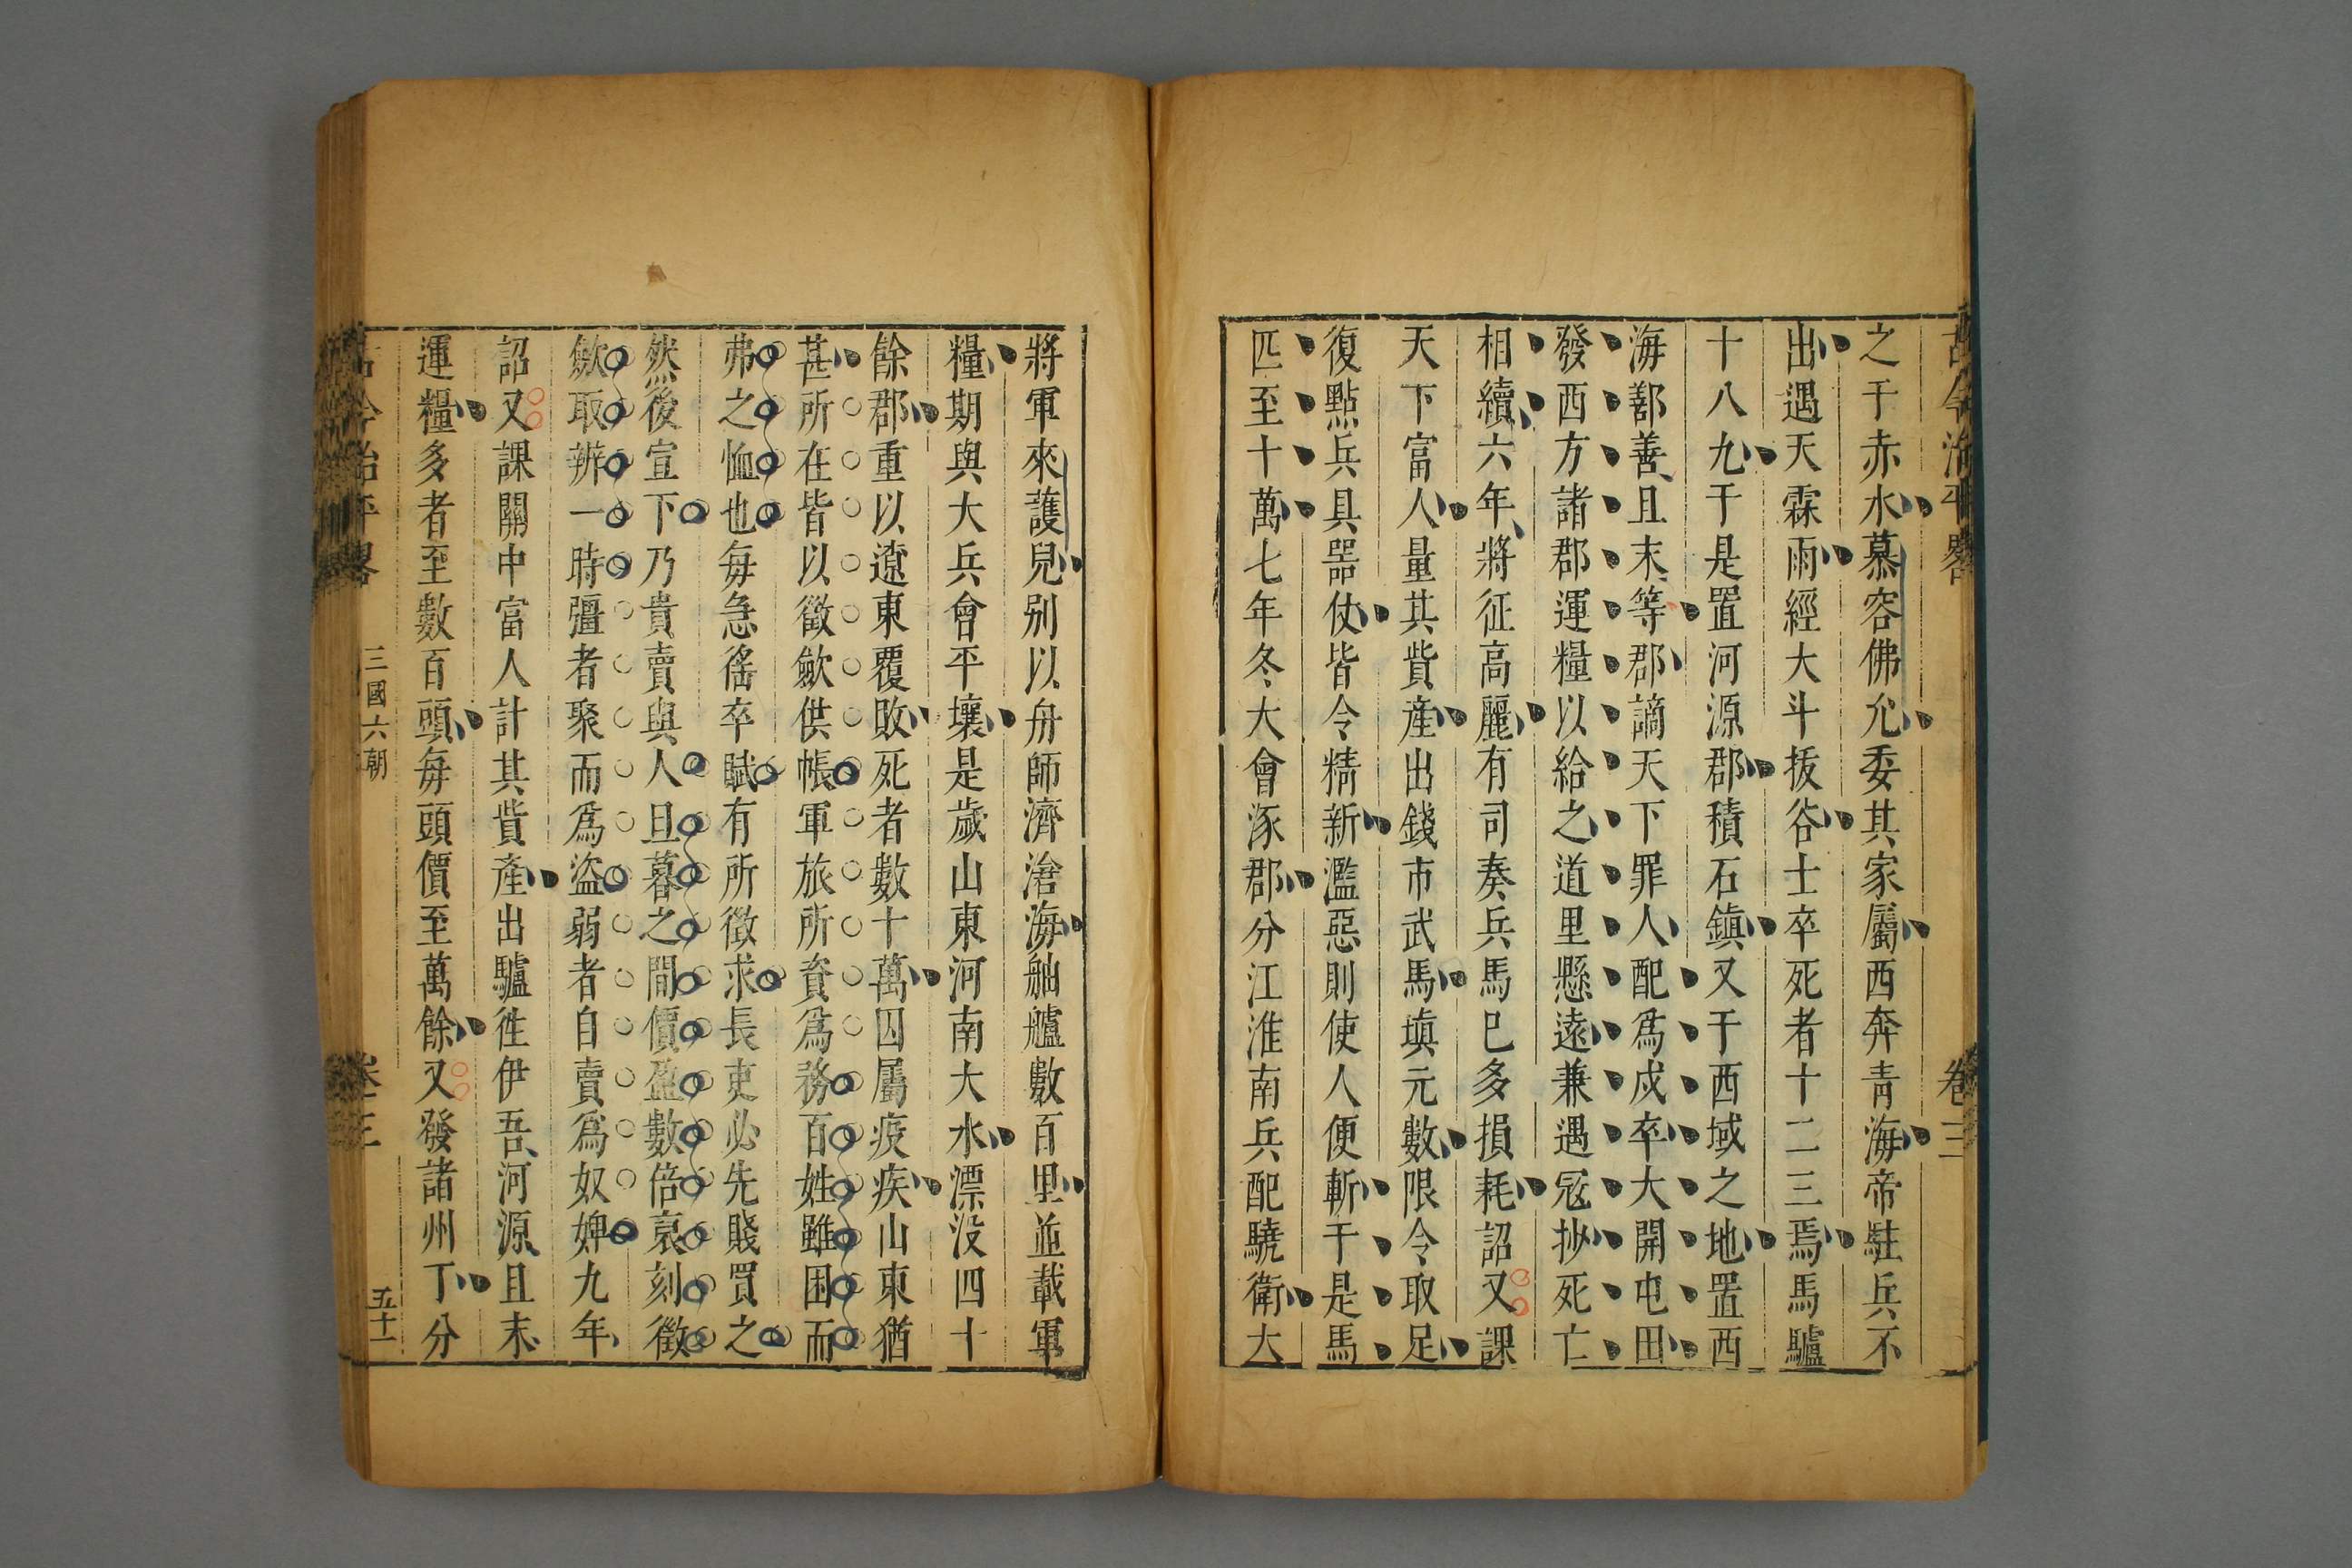 古今治平畧 卷三
之于赤水慕容佛允委其家屬西奔青海帝駐兵不
出遇天霖雨經大斗拔谷士卒死者十二三焉馬驢
十八九于是置河源郡積石鎮又于西域之地置西
海鄯善且末等郡謫天下罪人配爲戍卒大開屯田
發西方諸郡運糧以給之道里懸遠兼遇冦抄死亡
相續六年將征高麗有司奏兵馬巳多損耗詔又課
天下富人量其貲產出錢市武馬塡元數限令取足
復點兵具噐仗皆令精新濫惡則使人便斬于是馬
匹至十萬七年冬大會涿郡分江淮南兵配驍衛大
將軍來護兒别以舟師濟滄海舳艫數百里並載軍
糧期與大兵會平壤是歲山東河南大水漂没四十
餘郡重以遼東覆敗死者數十萬因屬疫疾山東猶
甚所在皆以徵歛供帳軍旅所資爲務百姓雖困而
弗之恤也每急徭卒賦有所徵求長吏必先賤買之
然後宣下乃貴賣與人旦暮之間價盈數倍裒刻徵
歛取辨一時彊者聚而爲盜弱者自賣爲奴婢九年
詔又課關中富人計其貲產出驢徃伊吾河源且末
運糧多者至數百頭每頭價至萬餘又發諸州丁分
古今治平畧 三國六朝 卷三 五十一